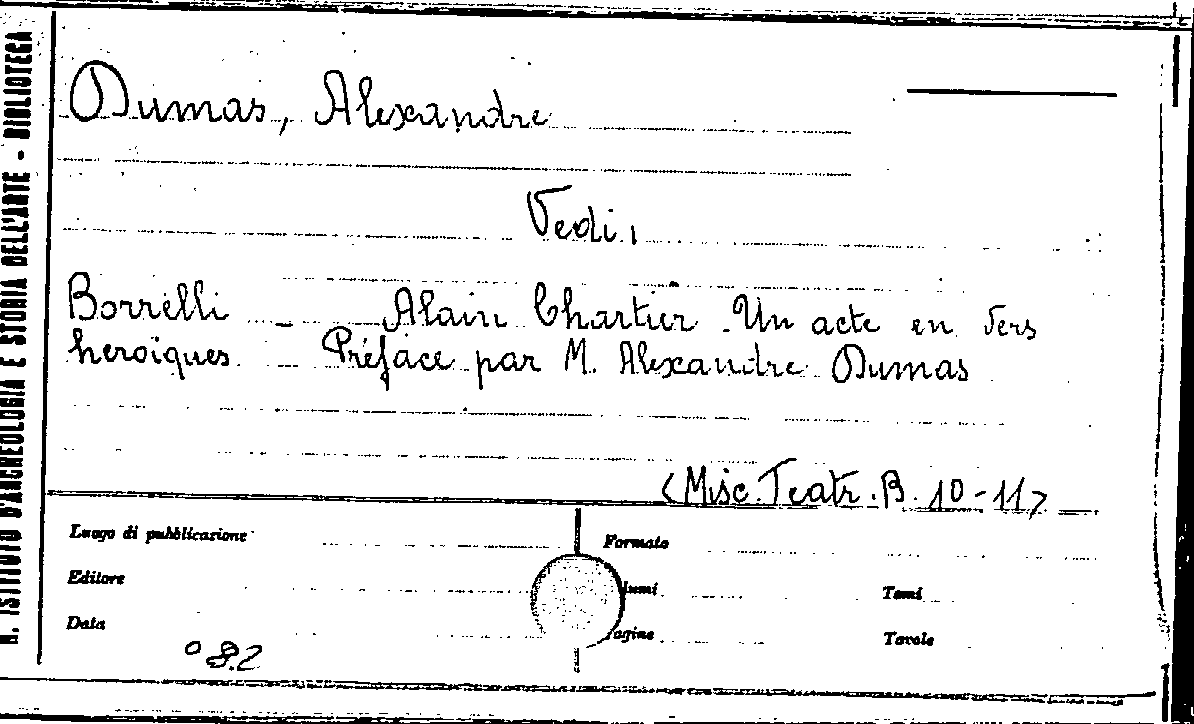 R. ISTITUTO D'ARCHEOLOGIA E STORIA DELL'ARTE - BIBLIOTECA
Dumas, Alexandre
Vedi:
Borrelli - Alain Chartier. Un acte en vers
heroïques. - Préface par M. Alexandre Dumas
<Misc. Teatr. B. 10-11>
Luogo di pubblicazione
Formato
Editore
lumi
Tomi
Data
agine
Tavole
°82